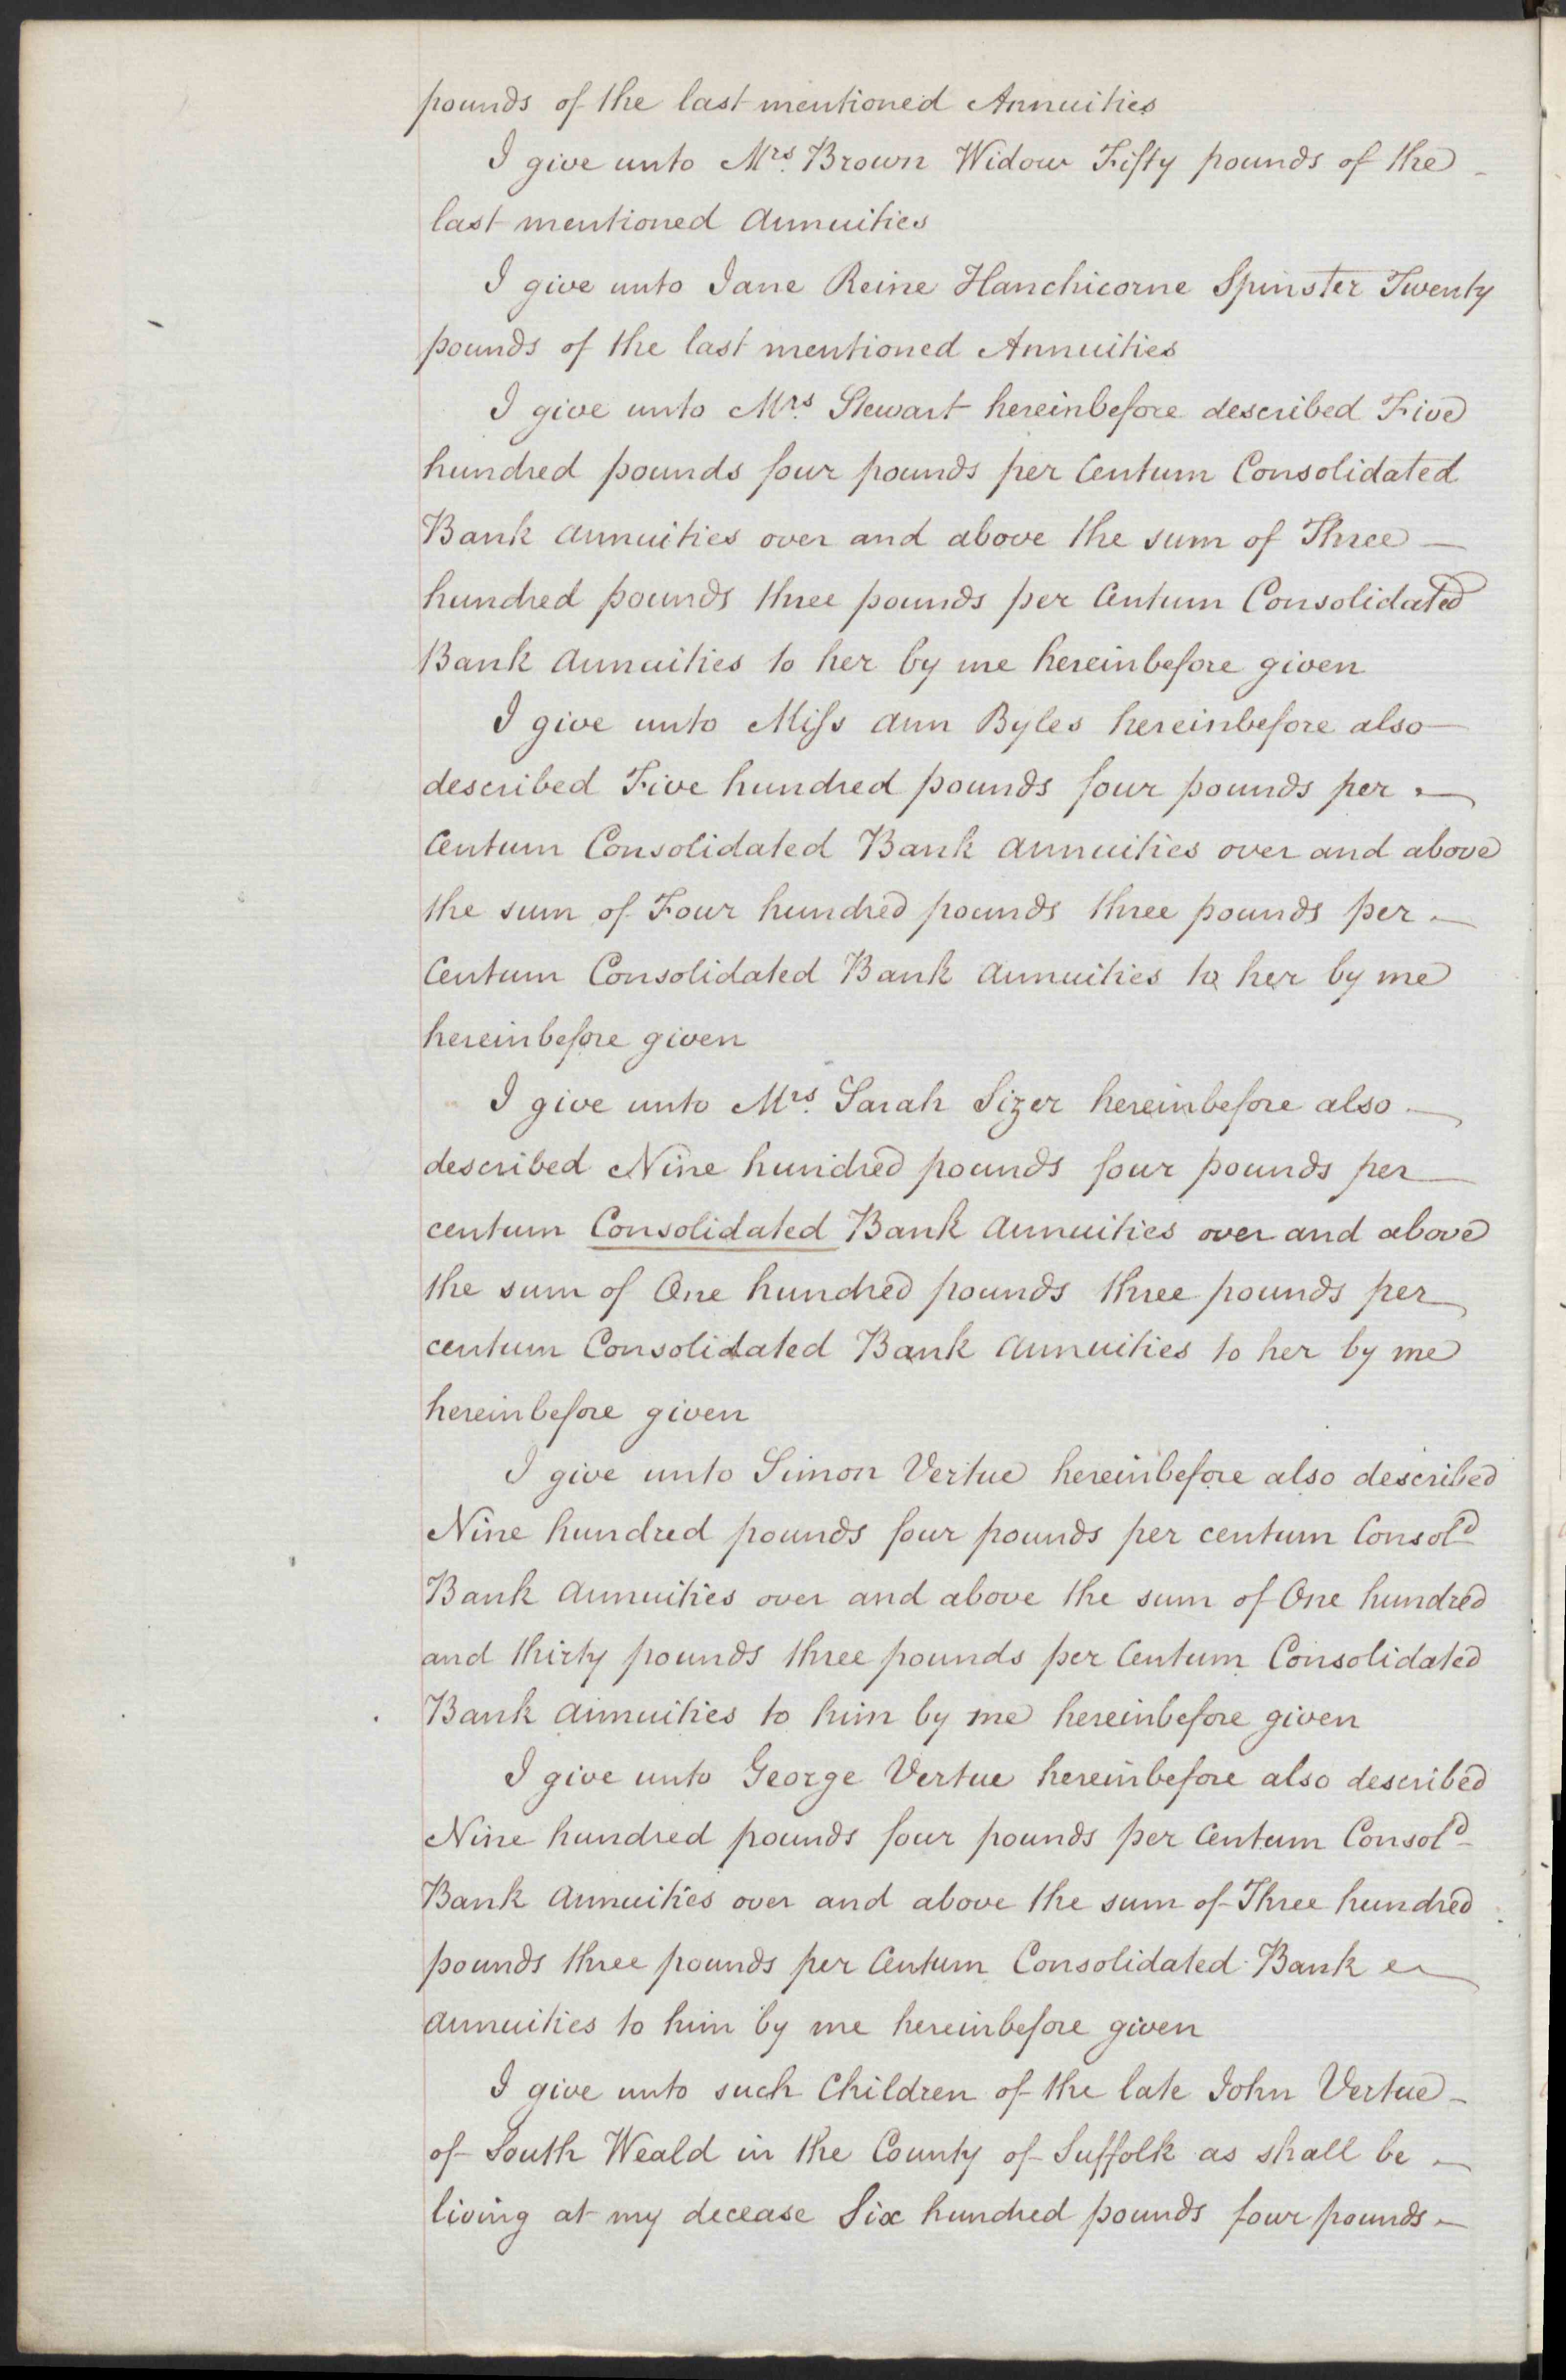 pounds of the last mentioned Annuities
I give unto Mrs. Brown Widow Fifty pounds of the
last mentioned Annuities
I give unto Jane Reine Hanchicorne Spinster Twenty
pounds of the last mentioned Annuities
I give unto Mrs. Stewart hereinbefore described Five
hundred pounds four pounds per Centum Consolidated
Bank Annuities over and above the sum of Three —
hundred pounds three pounds per Centum Consolidated
Bank Annuities to her by me hereinbefore given
I give unto Miſs Ann Byles hereinbefore also
described Five hundred pounds four pounds per —
Centum Consolidated Bank Annuities over and above
the sum of Four hundred pounds three pounds per —
Centum Consolidated Bank Annuities to her by me
hereinbefore given
I give unto Mrs. Sarah Sizer hereinbefore also —
described Nine hundred pounds four pounds per
centum Consolidated Bank Annuities over and above
the sum of One hundred pounds three pounds per
centum Consolidated Bank Annuities to her by me
hereinbefore given
I give unto Simon Vertue hereinbefore also described
Nine hundred pounds four pounds per centum Consold
Bank Annuities over and above the sum of One hundred
and thirty pounds three pounds per Centum Consolidated
Bank Annuities to him by me hereinbefore given
I give unto George Vertue hereinbefore also described
Nine hundred pounds four pounds per Centum Consold
Bank Annuities over and above the sum of Three hundred
pounds three pounds per Centum Consolidated Bank
Annuities to him by me hereinbefore given
I give unto such Children of the late John Vertue –
of South Weald in the County of Suffolk as shall be —
living at my decease Six hundred pounds four pounds —